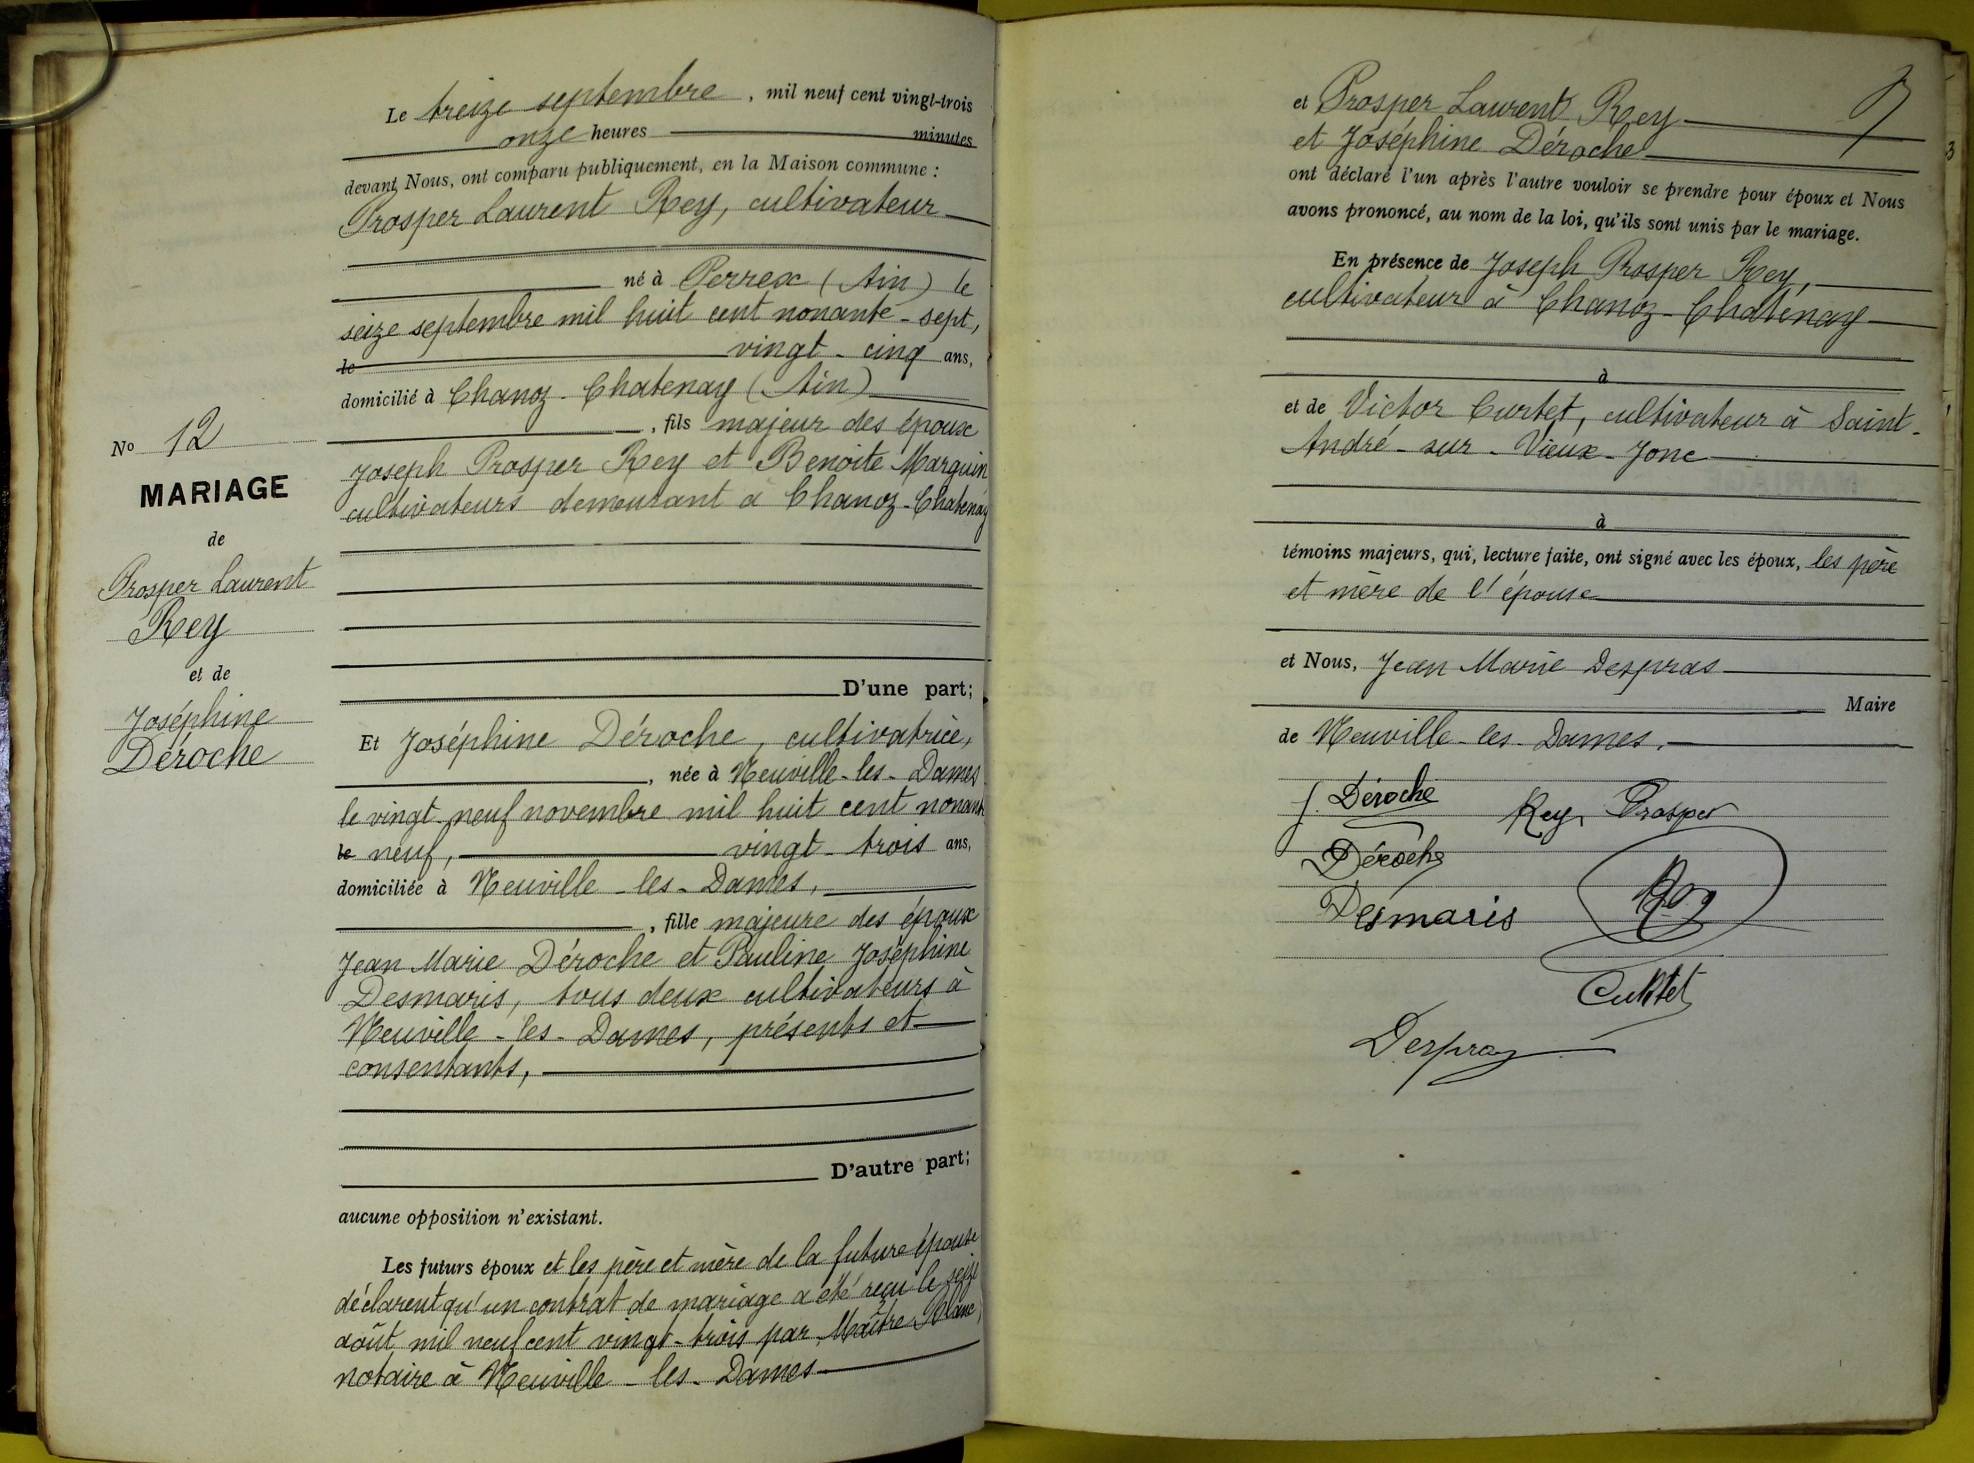 Le treize septembre, mil neuf cent vingt-trois
onze heures minutes
devant Nous, ont comparu publiquement, en la Maison commune :
Prosper Laurent Rey, cultivateur
né à Perrex (Ain) le
seize septembre mil huit cent nonante-sept,
le vingt-cinq ans,
domicilié à Chanoz-Chatenay (Ain)
, fils majeur des époux
Joseph Prosper Rey et Benoite Marguin
cultivateurs demeurant à Chanoz-Chatenay
No 12
MARIAGE
de
Prosper Laurent
Rey
et de
Joséphine
Déroche
D'une part;
Et Joséphine Déroche, cultivatrice,
, née à Neuville-les-Dames
le vingt-neuf novembre mil huit cent nonante
le neuf, vingt-trois ans,
domiciliée à Neuville-les-Dames,
, fille majeure des époux
Jean Marie Déroche et Pauline Joséphine
Desmaris, tous deux cultivateurs à
Neuville-les-Dames, présents et
consentants,
D'autre part;
aucune opposition n'existant.
Les futurs époux et les père et mère de la future épouse
déclarent qu'un contrat de mariage a été reçu le seize
août mil neuf cent vingt-trois par Maître Blanc,
notaire à Neuville-les-Dames
et Prosper Laurent Rey
et Joséphine Déroche
ont déclaré l'un après l'autre vouloir se prendre pour époux et Nous
avons prononcé, au nom de la loi, qu'ils sont unis par le mariage.
En présence de Joseph Prosper Rey,
cultivateur à Chanoz-Chatenay
à
et de Victor Curtet, cultivateur à Saint-
André-sur-Vieux-Jonc
à
témoins majeurs, qui, lecture faite, ont signé avec les époux, les père
et mère de l'épouse
et Nous, Jean Marie Despras
Maire
de Neuville-les-Dames.
J. Déroche Rey Prosper
Déroche
Desmaris Rey
Curtet
Despras
3